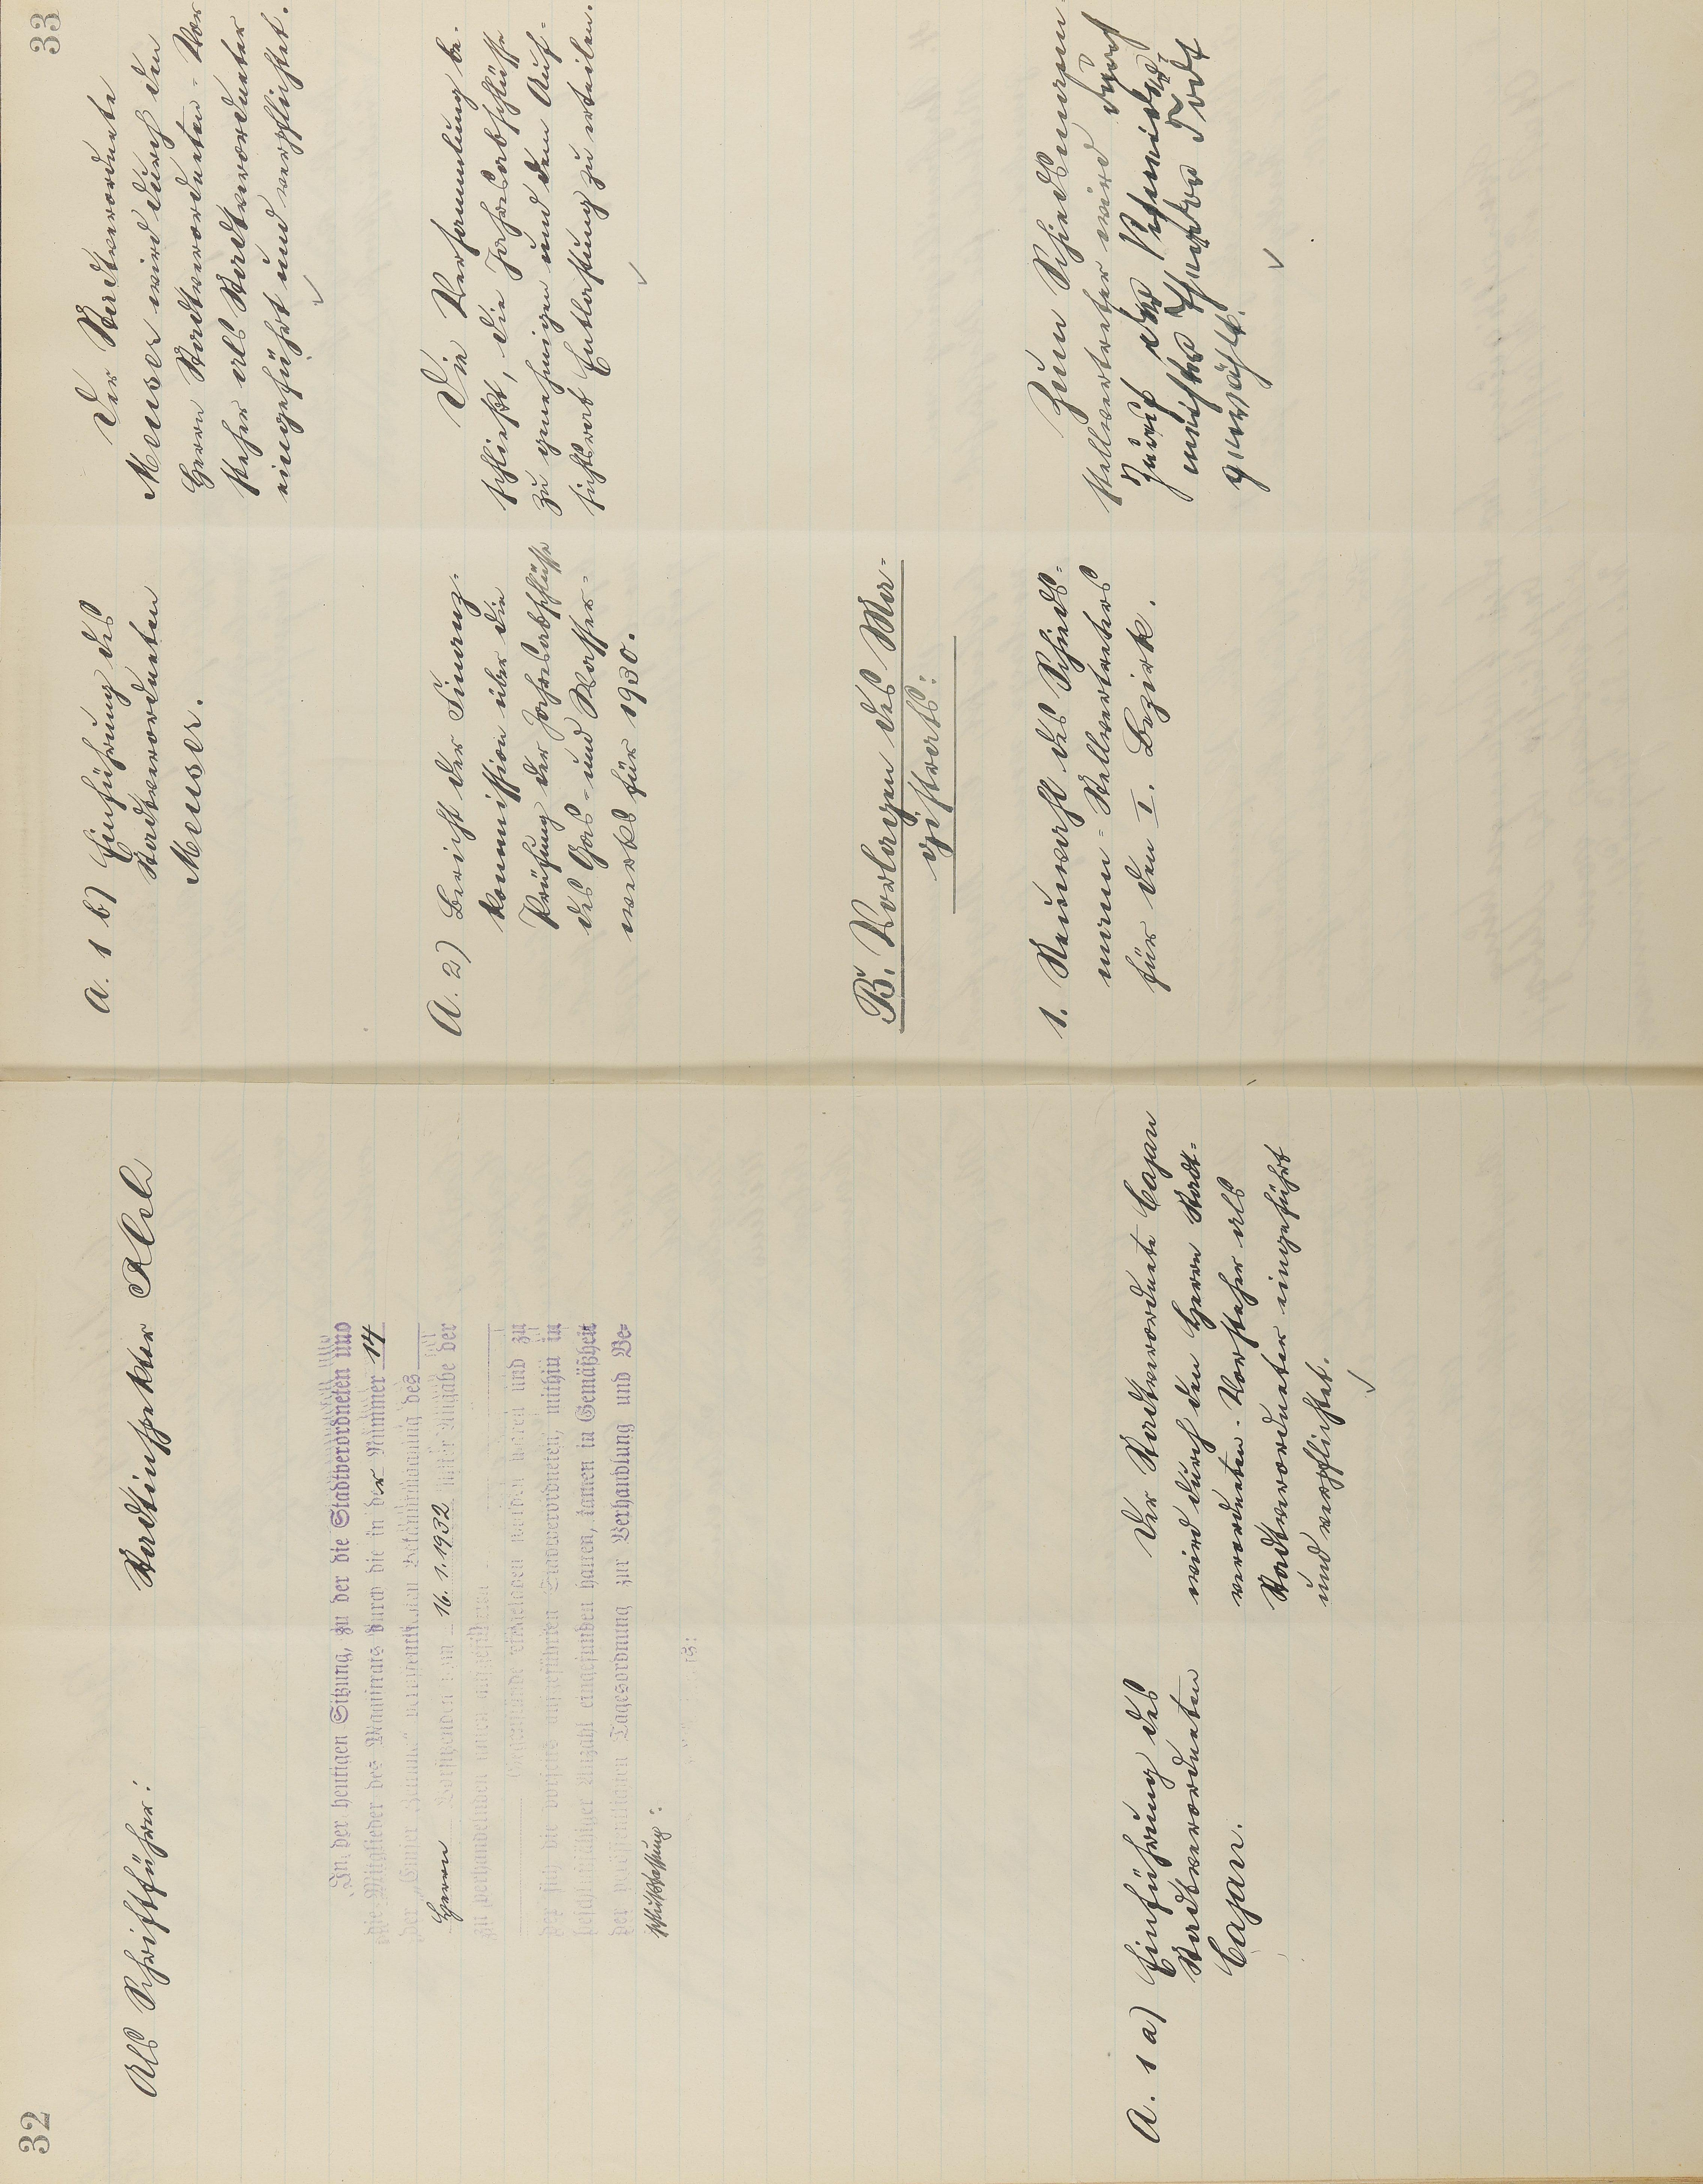 32
Als Schriftführer: Stadtinspektor Abel
In der heutigen Sitzung, zu der die Stadtverordneten und
die Mitglieder des Magistrats durch die in der Nummer 14
der Zeitung" veröffentlichten Bekanntmachung des
Herrn Vorsitzenden vom 16. 1. 1932 unter Angabe der
zu verhandelnden
Gegenstände eingeladen worden waren und zu
der sich die vorseits aufgeführten Stadtverordneten, mithin in
beschlußfähiger Anzahl eingefunden hatten, kamen in Gemäßheit
der Tagesordnung zur Verhandlung und Be-
schlußfassung:
A. 1 a) Einführung des
Stadtverordneten
Cajan.
Der Stadtverordnete Cajan
wird durch den Herrn Stadt-
verordneten-Vorsteher als
Stadtverordneter eingeführt
und verpflichtet.
33
A. 1 b) Einführung des
Stadtverordneten
Menser.
Der Stadtverordnete
Menser wird durch den
Herrn Stadtverordneten-Vor
steher als Stadtverordneter
eingeführt und verpflichtet.
A. 2) Bericht der Finanz-
kommission über die
Prüfung der Jahresabschlüsse
des Gas- und Wasser-
werks für 1930.
Die Versammlung be-
schließt, die Jahresabschlüsse
zu genehmigen und dem Auf-
sichtsrat Entlastung zu erteilen.
B. Vorlagen des Ma-
gistrats:
1. Neuwahl des Schieds-
mann-Stellvertreters
für den I. Bezirk.
Zum Schiedsmann-
stellvertreter wird durch
Zuruf der Schneider-
meister Todt
gewählt.